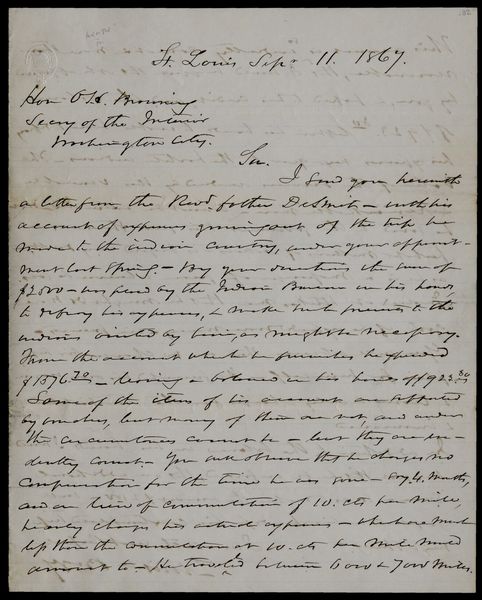 St. Louis Sepr 11. 1867.
Hon O. H. Browning
Secry of the Interior
Washington City.
Sir.
I send you herewith
a letter from the Revd. father DeSmet – with his
account of expenses growing out of the trip he
made to the indian country, under your appoint-
ment last Spring – By your direction the sum of
$2.800 – was paid by the Indian Bureau in his hands
to defray his expenses, & make such presents to the
indians visited by him, as might be necessary.
From the account which he furnishes he expended
$1876.20 – leaving a balance in his hands of $923.80
Some of the items of his account are supported
by vouchers, but many of them are not, and under
the circumstances cannot be – but they are evi-
dently correct – You will observe that he charges no
compensation for the time he was gone – say 4. months,
and in lieu of commutation of 10. cts per mile,
he only charges his actual expenses – which are much
less than the commutation at 10. cts per mile would
amount to – He traveled between 6000 & 7000 miles.